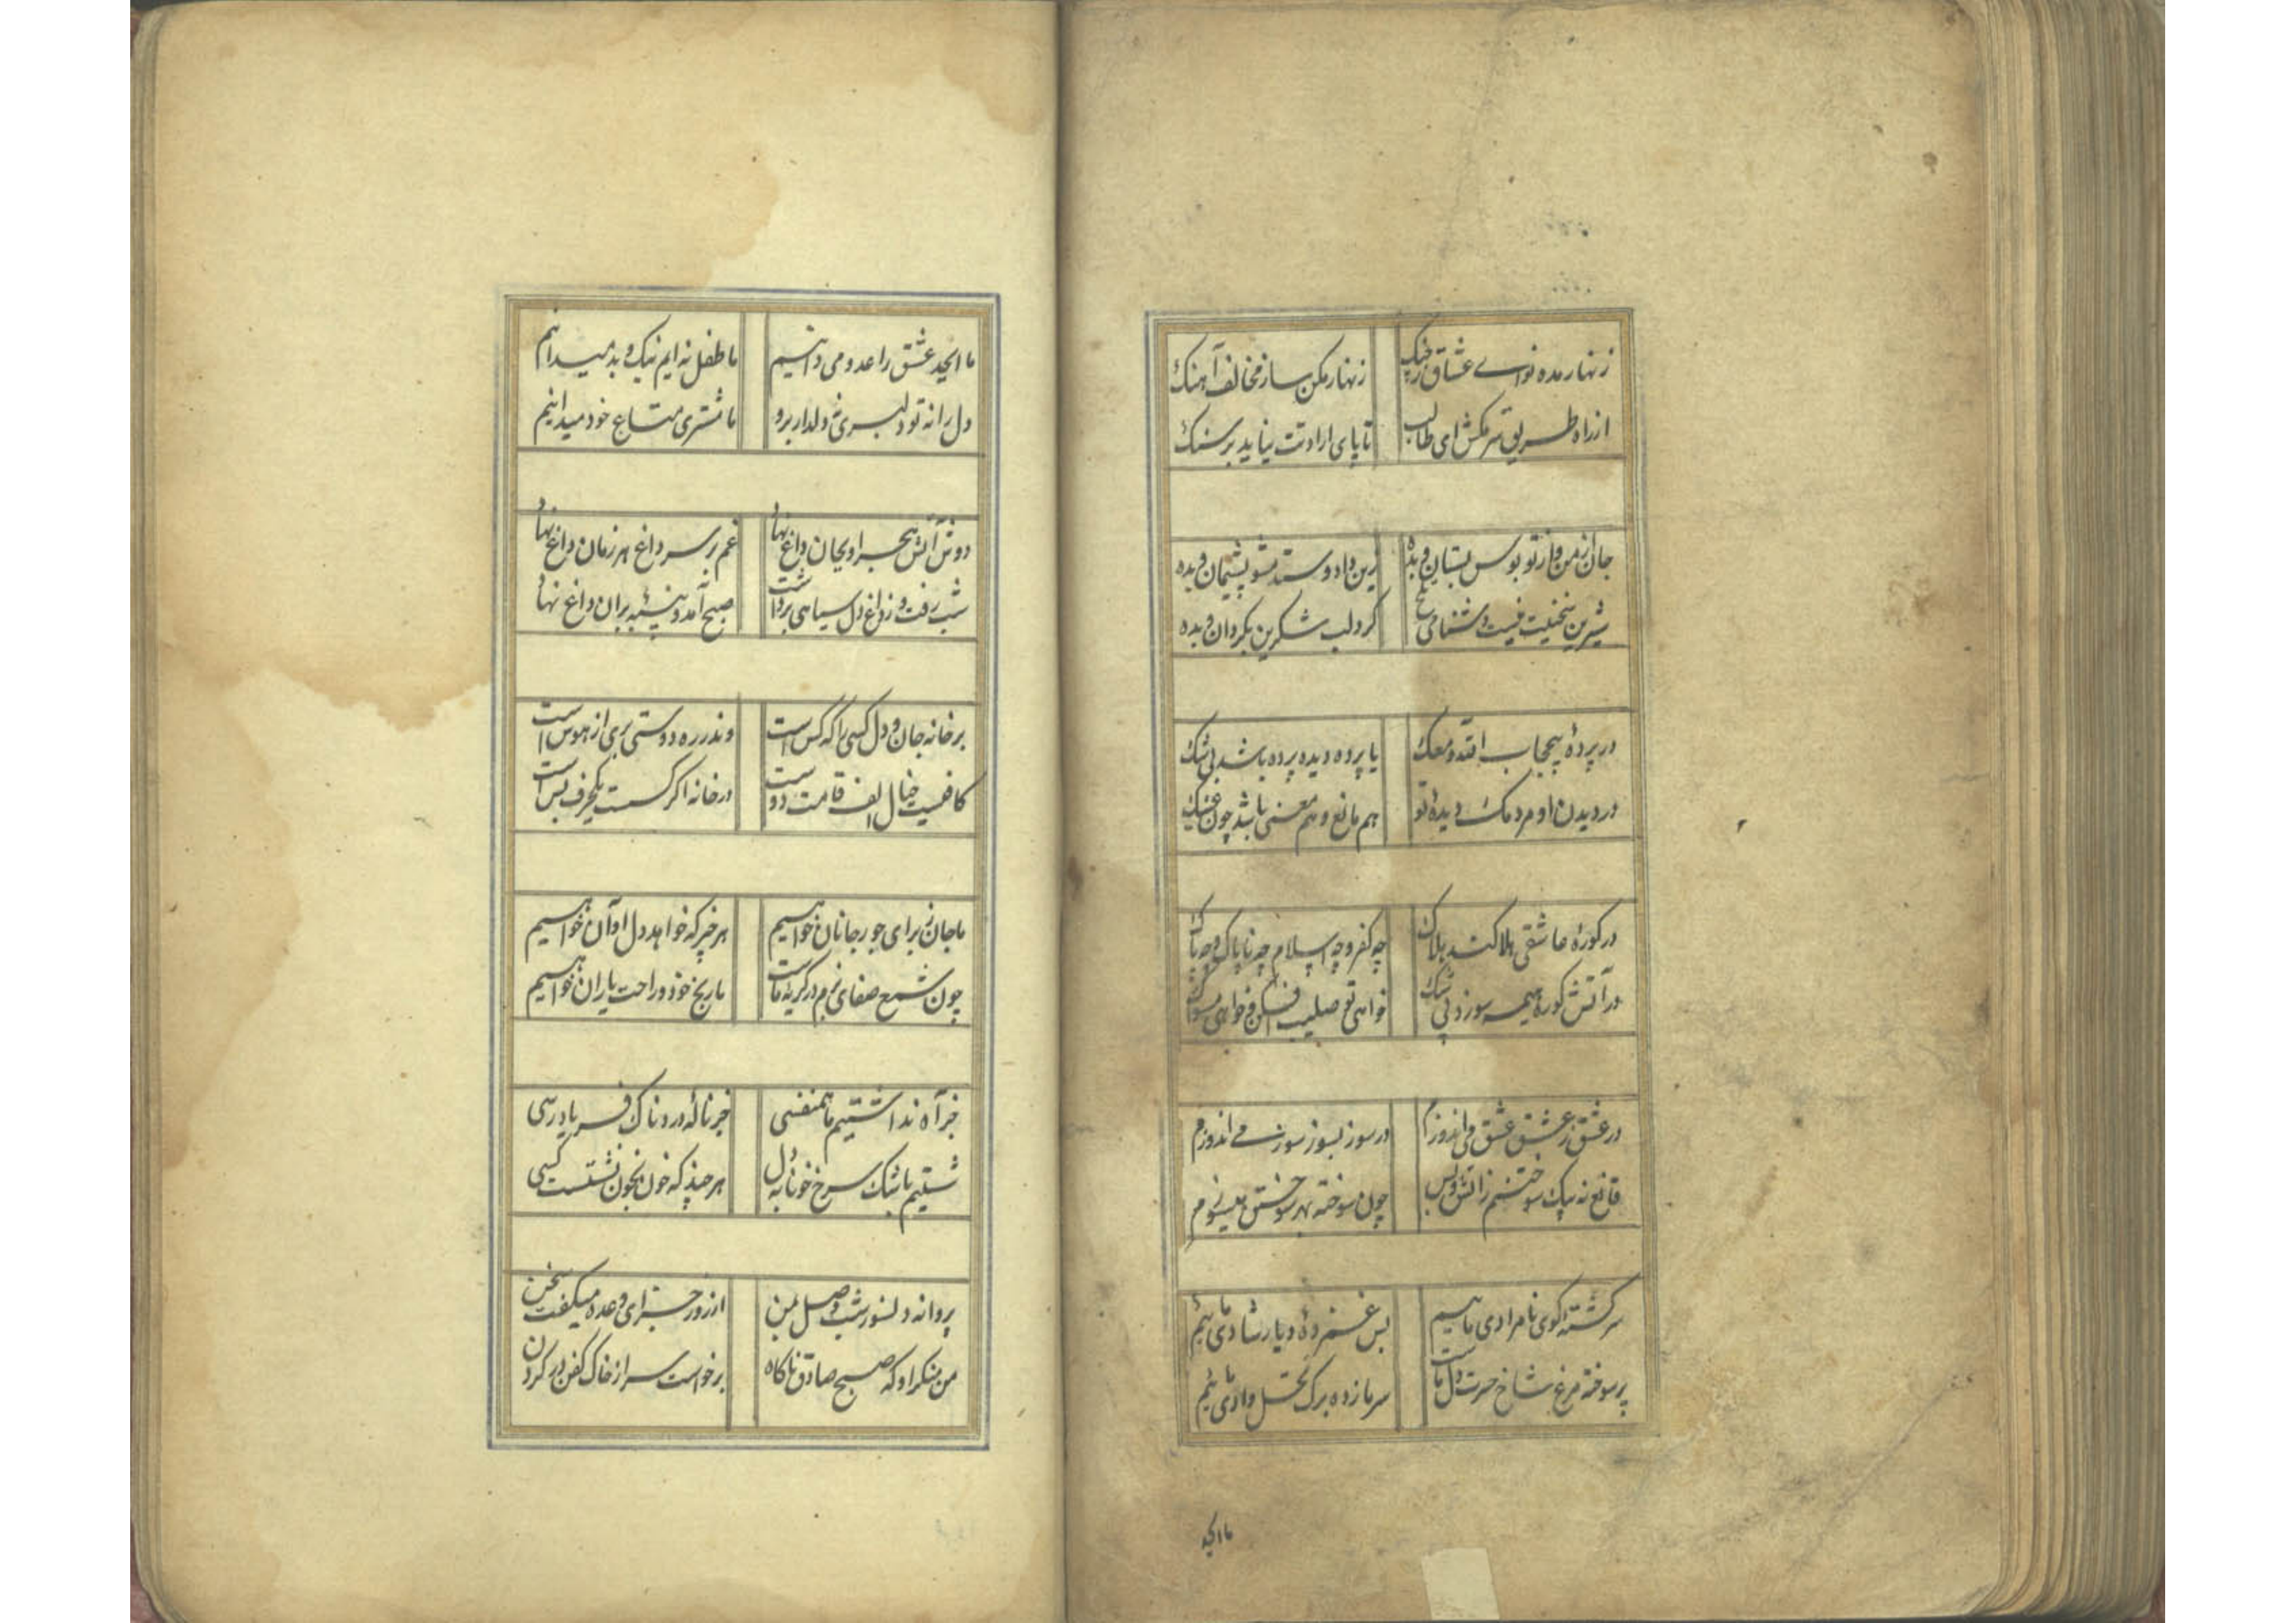 زنهار مده نوای عشاق زچنک
زنهار مکن ساز مخالف آهنک
از راه طریق سرمکش ای طالب
تا پای ارادتت نیاید بر سنک
جان زمن و از تو بوس بستان و بده
زین داد و ستد مشو پشیمان و بده
شیرین سخنیت نیست دشنامی تلخ
کرد لب شکرین بکردان و بده
در پردهٔ حجاب افتد
یا پرده دیده پرده باشد بی شک
در دیدن او مردمک دیدهٔ تو
هم مانع و هم معنی باشد چون عینک
در کورهٔ عاشقی هلاکند هلاک
چه کفر و چه اسلام چه ناپاک و چه پاک
در آتش کوره همه سوزد بی شک
خواهی تو صلیب افکن و خواهی مسواک
در عشق ز عشق عشق می اندوزم
در سوز بسوز سوز می اندوزم
قانع نه بیک سوختنم زاتش و بس
چون سوخته بهر سوختن میسوزم
سرکشته کوی نامرادی ماییم
بس غمزدهٔ و یار شادی ماییم
پر سوخته مرغ شاخ حسرت دل ماست
سرمازده برک نخل وادی ماییم
ما ابجد
ما ابجد عشق را عدو می دانیم
ما طفل نه ایم نیک و بد میدانیم
دل را نه تو دلبری نه دلدار برو
ما مشتری متاع خود میدانیم
دوش آتش هجر او بجان داغ نهاد
غم بر سر داغ هر زمان داغ نهاد
شب رفت و ز داغ دل سیاهی برداشت
صبح آمد و پنبه بران داغ نهاد
بر خانه جان و دل کسی را که کس است
وندر ره دوستی بری از هوس است
کافیست خیال الف قامت دوست
در خانه اکر کسست یکحرف بس است
ما جان ز برای جور جانان خواهیم
هر خیر که خواهد دل او آن خواهیم
چون شمع صفای بزم در کریهٔ ماست
ما رنج خود و راحت یاران خواهیم
جز آه نداشتیم ما همنفسی
جز نالهٔ دردناک فریادرسی
شستیم باشک سرخ خونابه دل
هر چند که خون بخون نشستست کسی
پروانه دلسوز شب وصل بمن
از روز جزای وعده میکفت سخن
من منکر او که صبح صادق ناکاه
برخواست سر از خاک کفن در کردن